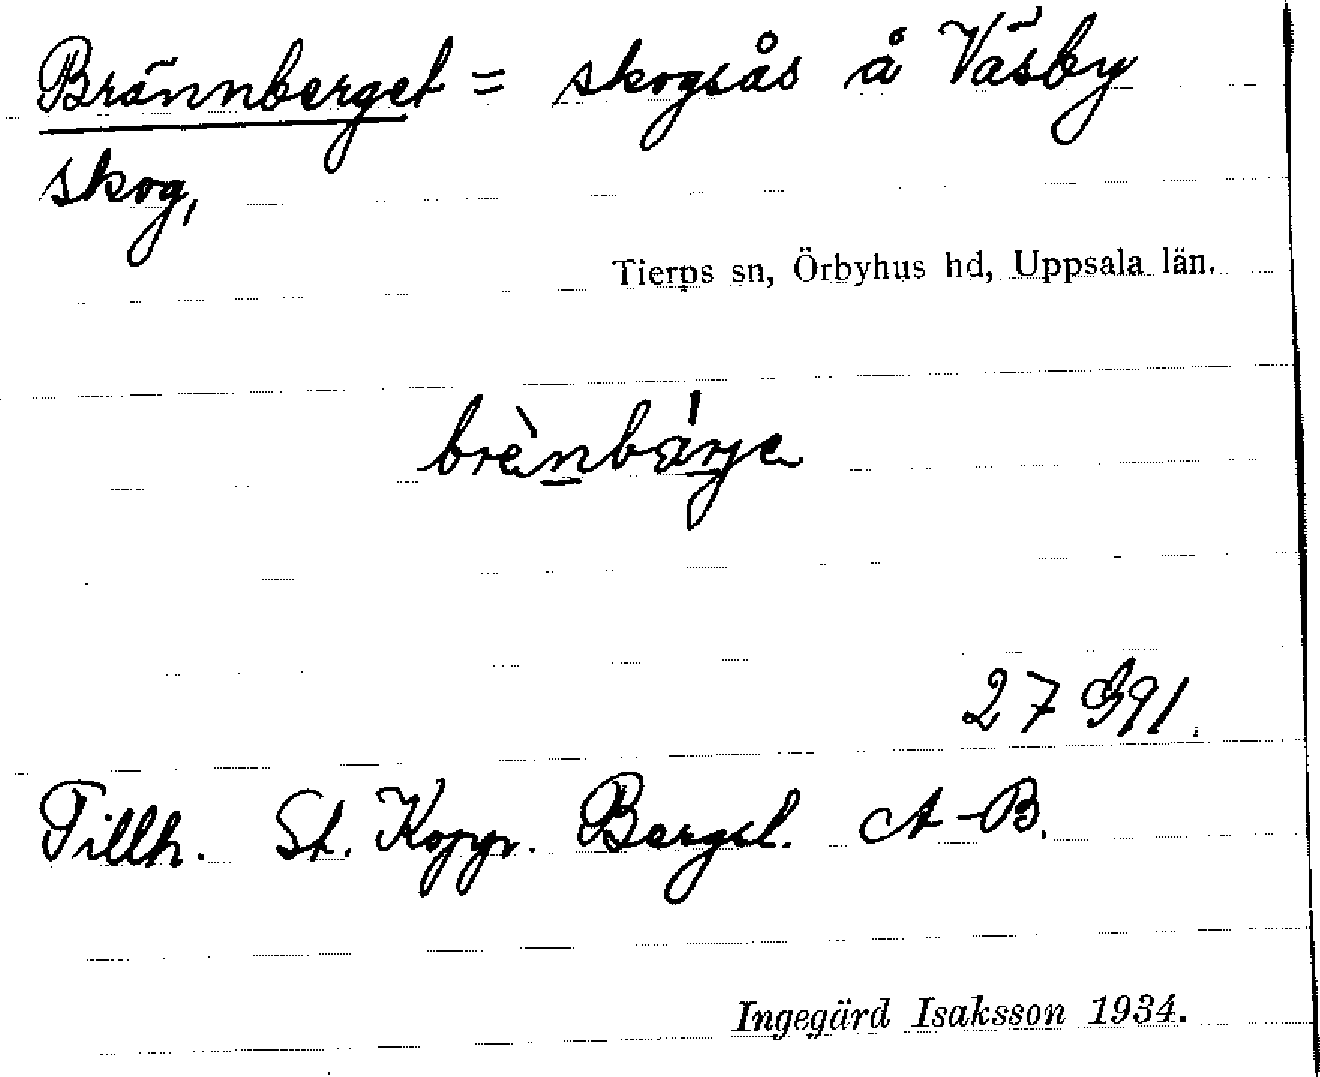 Brännberget = skogsås å Väsby
skog,
Tierps sn, Örbyhus hd, Uppsala län.
brènbárje
27 G91.
Tillh. St. Koppr. Bergsl. A-B.
Ingegärd Isaksson 1934.